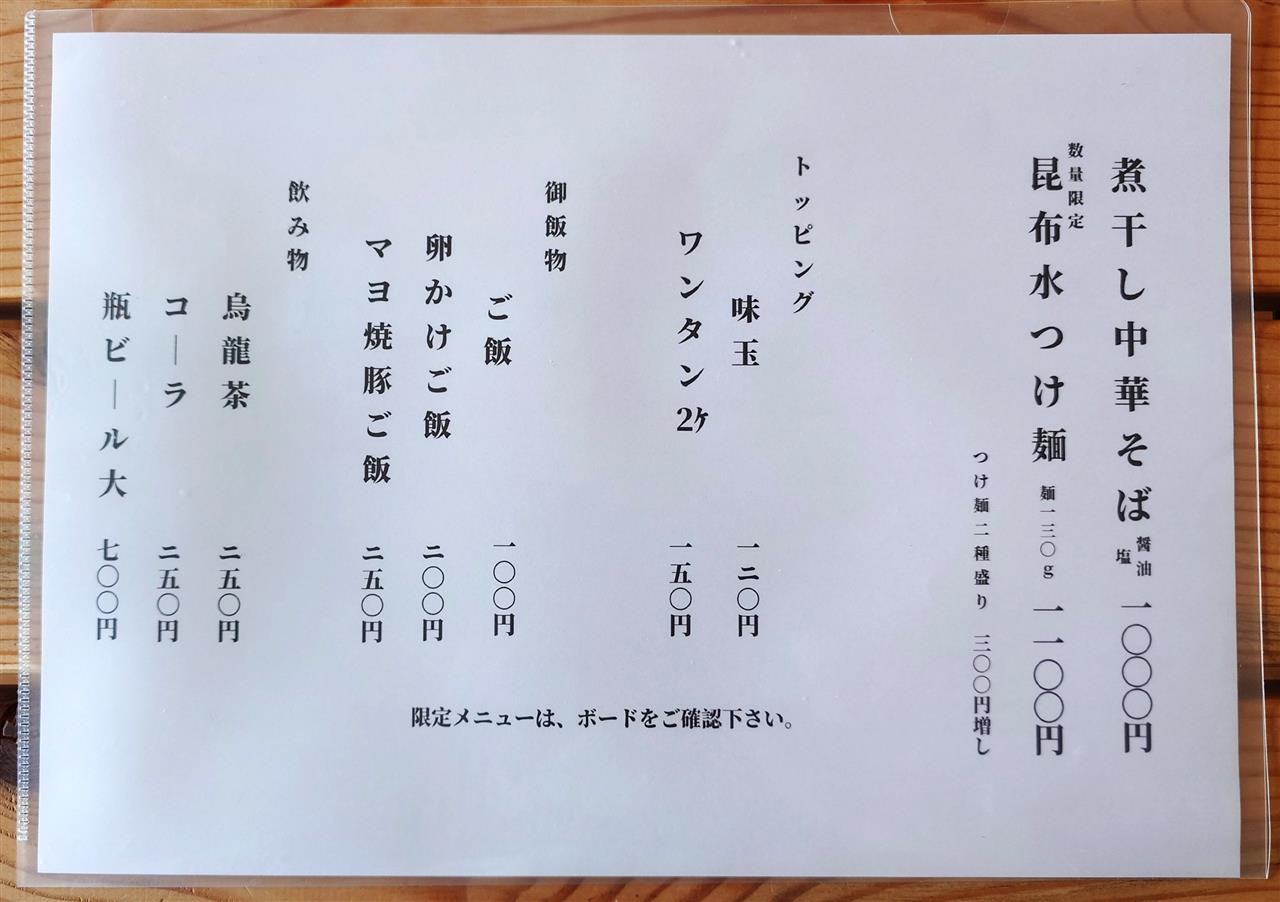 煮干し中華そば 醤油 塩 一〇〇〇円
数量限定
昆布水つけ麺 麺一三〇g 一一〇〇円
つけ麺二種盛り 三〇〇円増し
トッピング
味玉 一二〇円
ワンタン2ケ 一五〇円
御飯物
ご飯 一〇〇円
卵かけご飯 二〇〇円
マヨ焼豚ご飯 二五〇円
飲み物
烏龍茶 二五〇円
コーラ 二五〇円
瓶ビール大 七〇〇円
限定メニューは、ボードをご確認下さい。